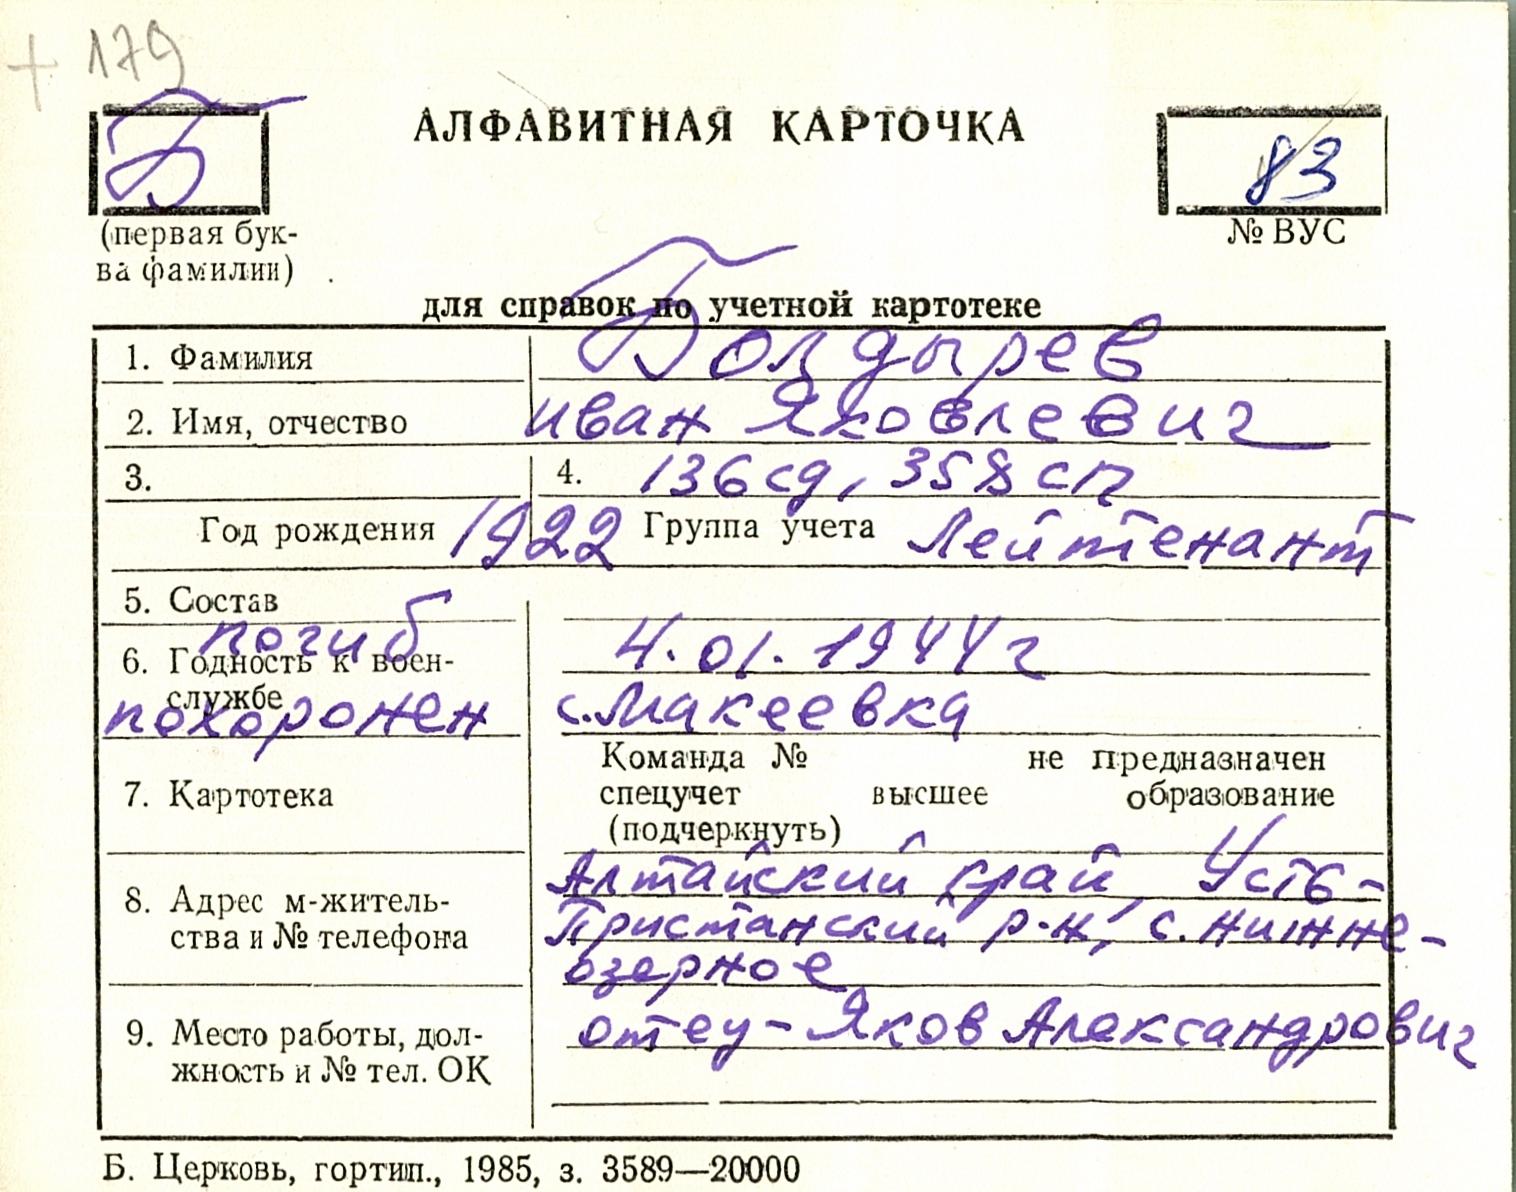 + 179
Б
АЛФАВИТНАЯ КАРТОЧКА
83
(первая бук-
ва фамилии)
№ ВУС
для справок по учетной картотеке
1. Фамилия Болдырев
2. Имя, отчество Иван Яковлевич
3. 4. 136 сд, 358 сп
Год рождения 1922 Группа учета Лейтенант
5. Состав
погиб 4.01.1944г
6. Годность к воен-
службе
похоронен с. Макеевка
Команда № не предназначен
7. Картотека спецучет высшее образование
(подчеркнуть)
8. Адрес м-житель- Алтайский край, Усть-
ства и № телефона Пристанский р-н, с. Нижне-
озерное
9. Место работы, дол- отец - Яков Александрович
жность и № тел. ОК
Б. Церковь, гортип., 1985, з. 3589—20000